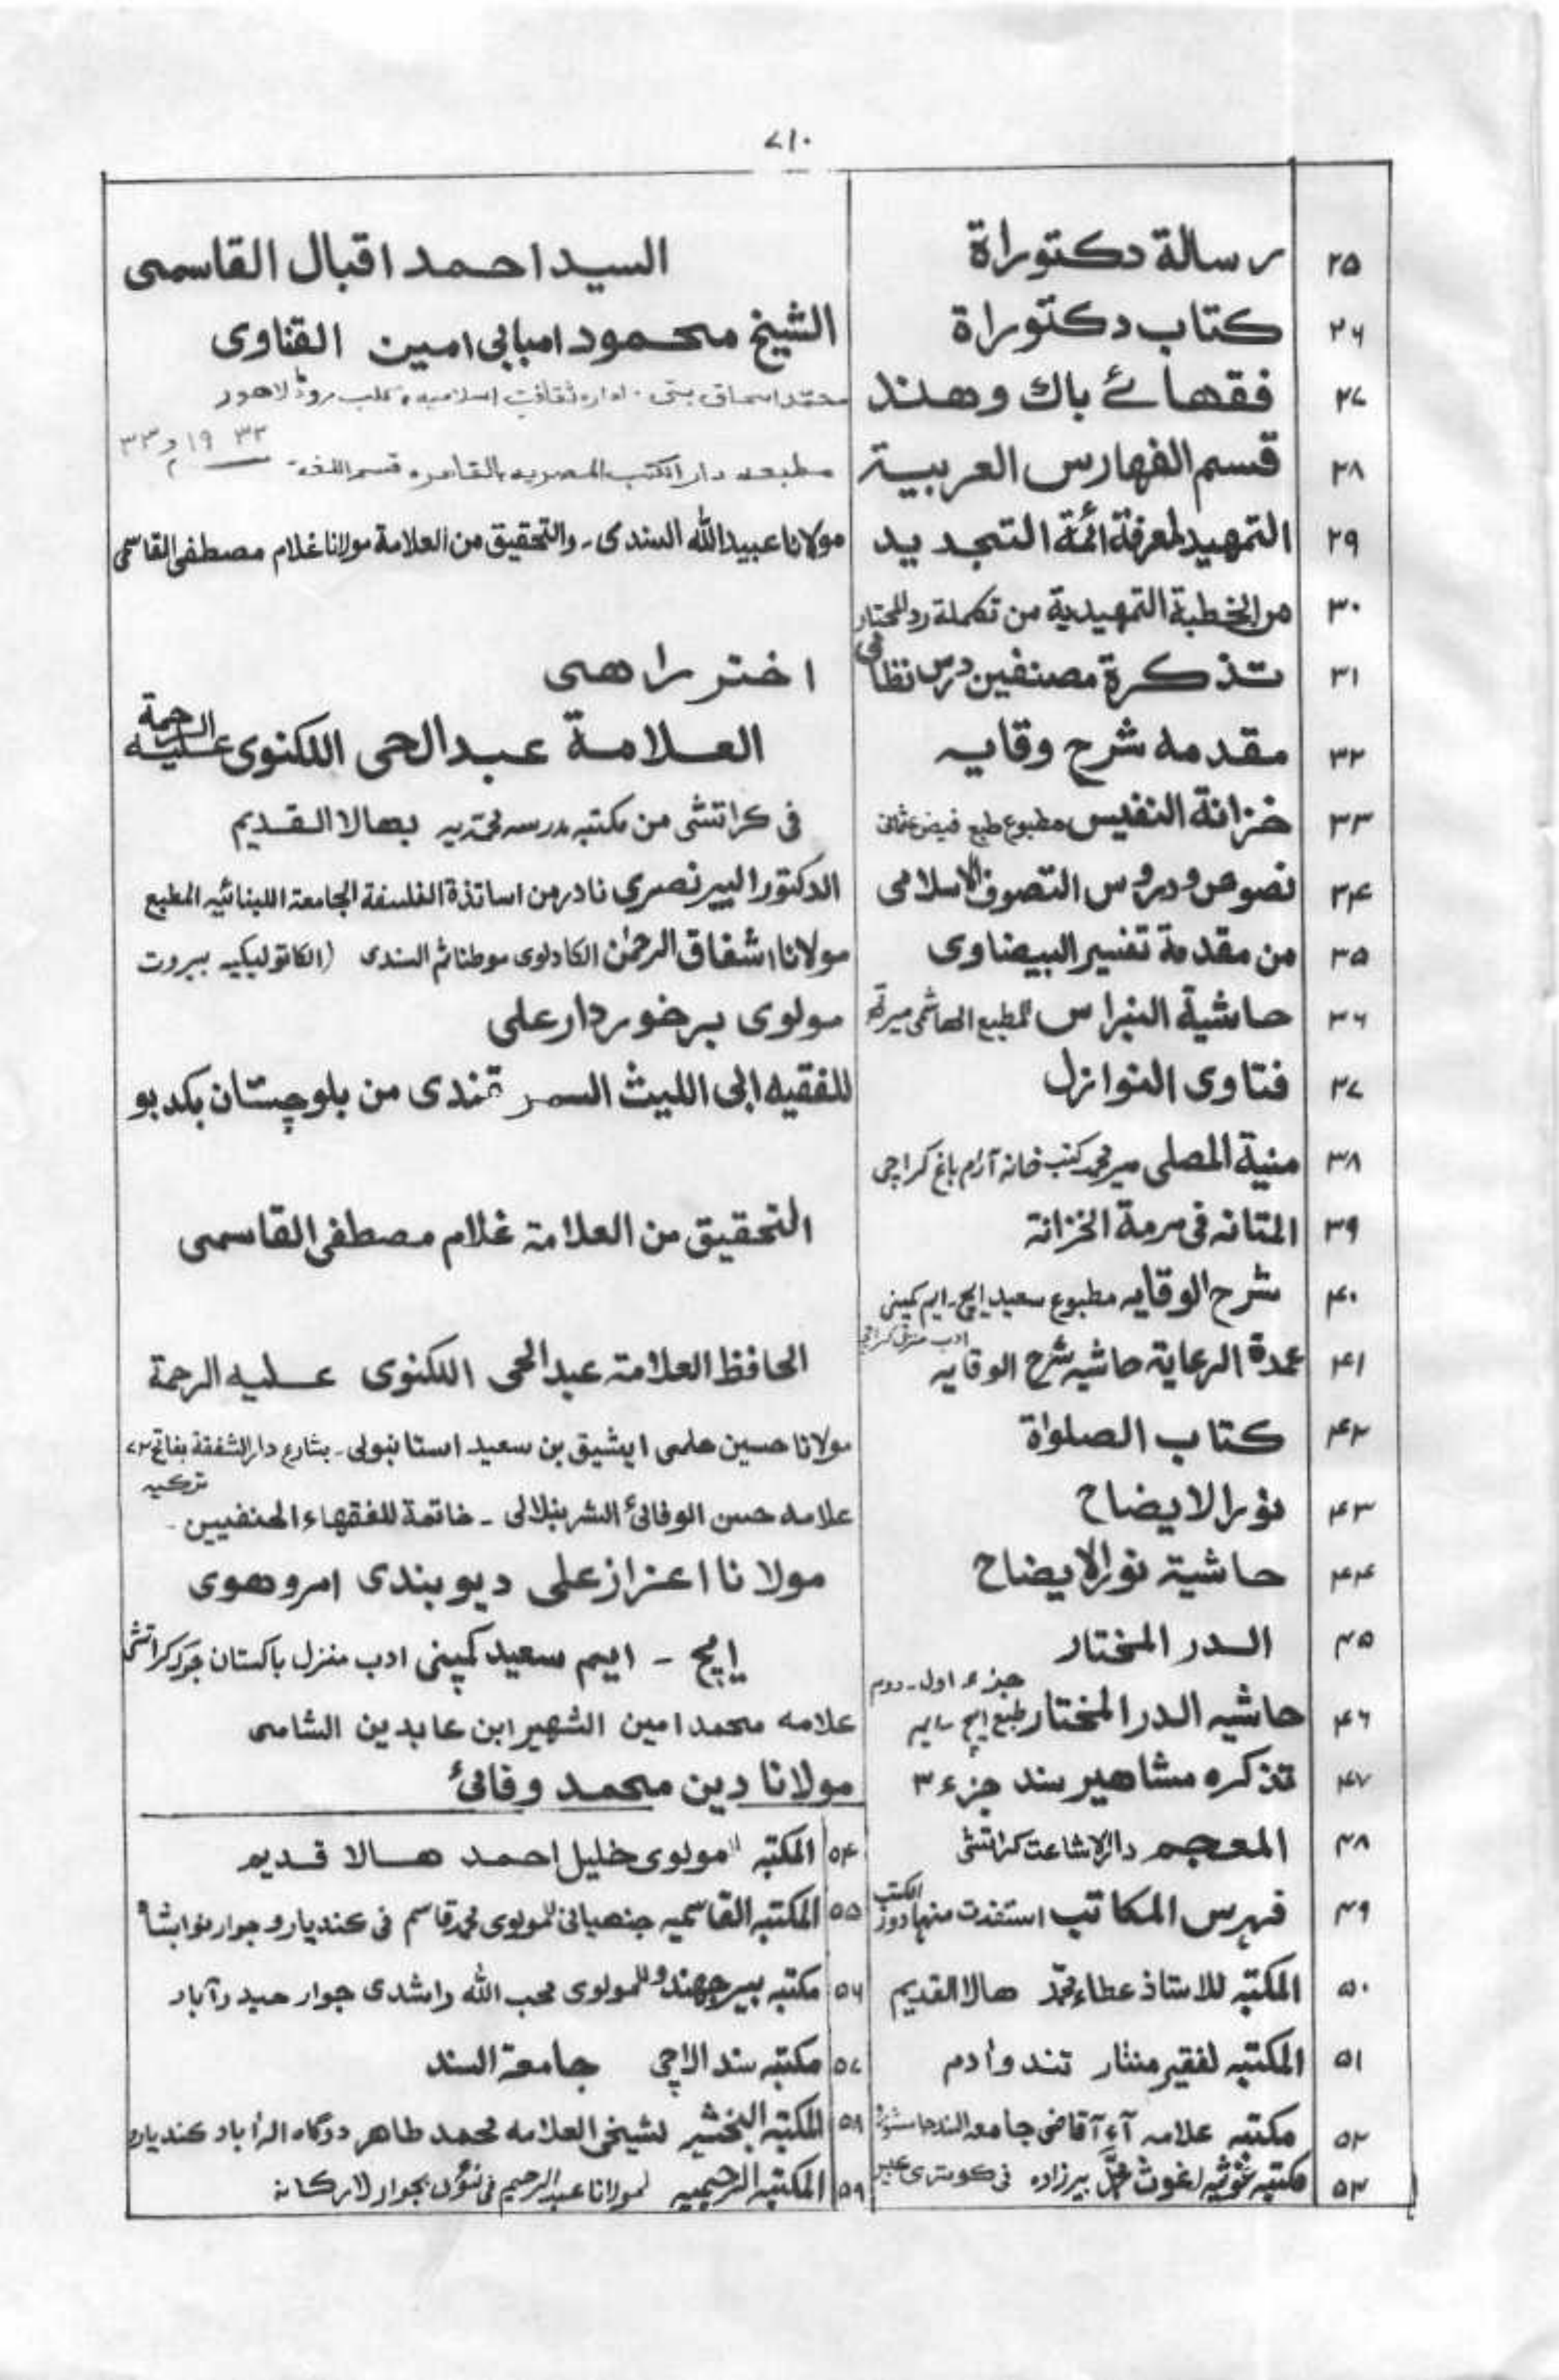 ۷۱۰
۲۵ رسالة دكتوراة السيد احمد اقبال القاسمى
۲۶ كتاب دكتوراة الشيخ محمود امبابى امين القناوى
۲۷ فقهائے باك وهند محمد اسحاق بتى ۔ اداره ثقافت اسلاميه كلب رود لاهور
۲۸ قسم الفهارس العربية مطبعه دار الكتب المصريه بالقاهره قسم اللغة ۱۹۳۳
۲۹ التمهيد لمعرفة ائمة التجديد مولانا عبيدالله السندى ۔ والتحقيق من العلامة مولانا غلام مصطفى القاسمى
۳۰ من الخطبة التمهيدية من تكملة رد المحتار
۳۱ تذكرة مصنفين درس نظامى اختر راهى
۳۲ مقدمه شرح وقايه العلامة عبدالحى اللكنوى عليه الرحمة
۳۳ خزانة النفيس مطبوع طبع فيض عثمان فى كراتشى من مكتبه مدرسه محمديه بهالا القديم
۳۴ نصوص ودروس التصوف الاسلامى الدكتور البير نصرى نادر من اساتذة الفلسفة الجامعة اللبنانيه المطبع
۳۵ من مقدمة تفسير البيضاوى مولانا اشفاق الرحمٰن الكادلوى موطنا ثم السندى (الكاتوليكيه بيروت
۳۶ حاشية النبراس المطبع الهاشمى ميرته مولوى برخوردار على
۳۷ فتاوى النوازل للفقيه ابى الليث السمرقندى من بلوچستان بكدبو
۳۸ منية المصلى مير محمد كتب خانه آرام باغ كراچى
۳۹ المتانه فى مرمة الخزانة التحقيق من العلامة غلام مصطفى القاسمى
۴۰ شرح الوقايه مطبوع سعيد ايچ ۔ ايم كمپنى ادب منزل كراچى
۴۱ عمدة الرعاية حاشيه شرح الوقايه الحافظ العلامة عبدالحى اللكنوى عليه الرحمة
۴۲ كتاب الصلواة مولانا حسين حلمى ايشيق بن سعيد استانبولى ۔ بشارع دار الشفقة بفاتح ۷۲ تركيه
۴۳ نور الايضاح علامه حسن الوفائى الشرنبلالى ۔ خاتمة للفقهاء الحنفيين ۔
۴۴ حاشية نور الايضاح مولانا اعزاز على ديوبندى امروهوى
۴۵ الدر المختار ايچ ۔ ايم سعيد كمپنى ادب منزل باكستان چوک كراتشى
۴۶ حاشيه الدر المختار طبع ايچ ۔ ايم جزء اول ۔ دوم علامه محمد امين الشهير ابن عابدين الشامى
۴۷ تذكره مشاهير سند جزء ۳ مولانا دين محمد وفائى
۴۸ المعجم دار الاشاعت كراتشى
۴۹ فهرس المكاتب استفدت منها دور الكتب
۵۰ المكتبه للاستاذ عطاء محمد هالا القديم
۵۱ المكتبه لفقير منثار تندو آدم
۵۲ مكتبه علامه آء آ قاضى جامعه السند جامشورو
۵۳ مكتبه غوثيه لغوث محمد بيرزاده فى كوترى كبير
۵۴ المكتبه لمولوى خليل احمد هالا قديم
۵۵ المكتبه القاسميه جنهيانى للمولوى محمد قاسم فى كنديارو جوار نوابشاه
۵۶ مكتبه بير جهندو للمولوى محب الله راشدى جوار حيدرآباد
۵۷ مكتبه سندالاجى جامعة السند
۵۸ المكتبه البخشيه لشيخى العلامه محمد طاهر درگاه الہ آباد كنديارو
۵۹ المكتبه الرحيميه لمولانا عبدالرحيم فى بجوار لاركانه